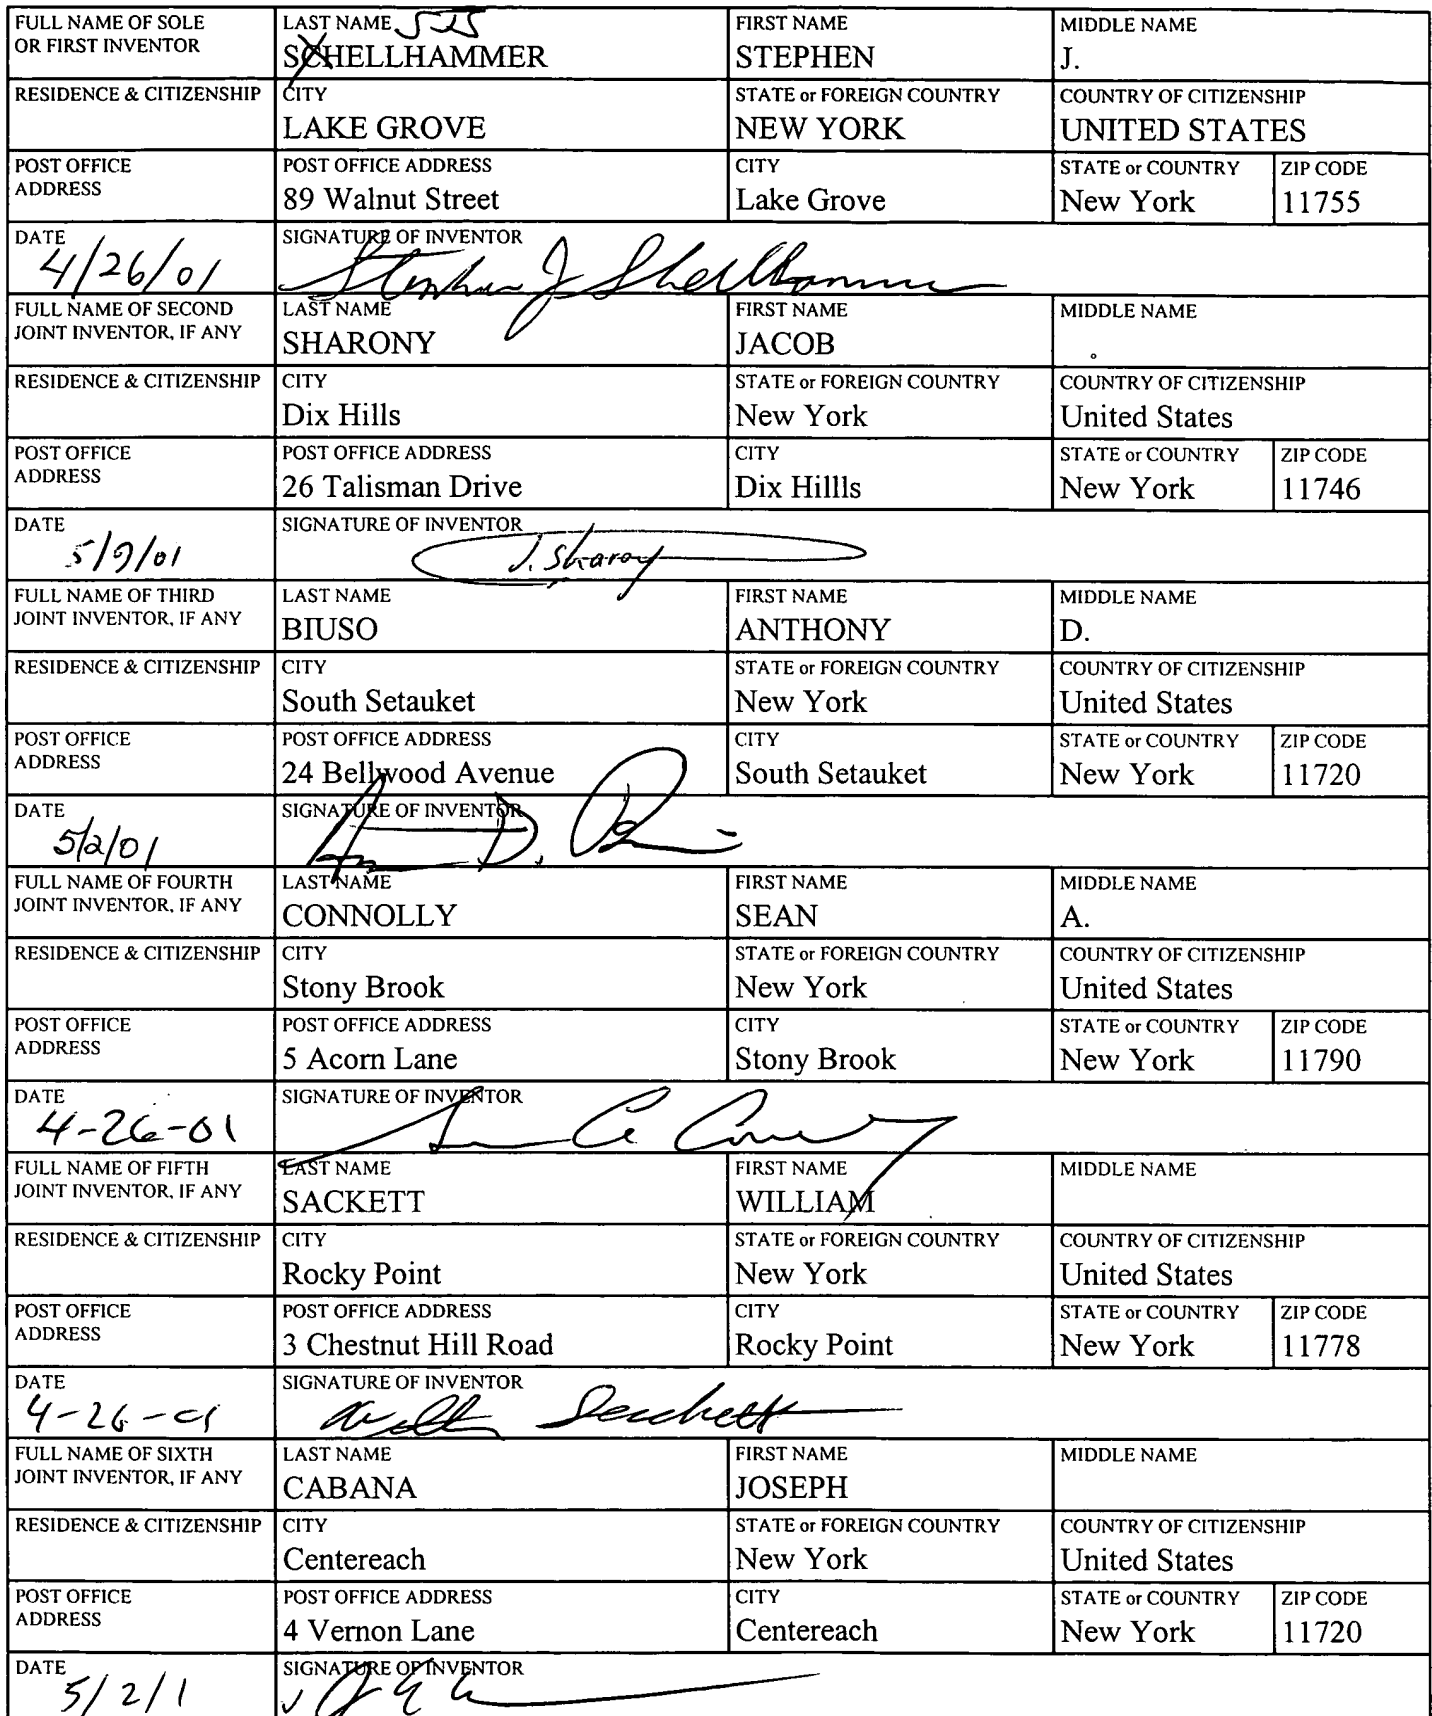 FULL NAME OF SOLE OR FIRST INVENTOR
LAST NAME SJS
SCHELLHAMMER
FIRST NAME
STEPHEN
MIDDLE NAME
J.
RESIDENCE & CITIZENSHIP
CITY
LAKE GROVE
STATE or FOREIGN COUNTRY
NEW YORK
COUNTRY OF CITIZENSHIP
UNITED STATES
POST OFFICE
ADDRESS
POST OFFICE ADDRESS
89 Walnut Street
CITY
Lake Grove
STATE or COUNTRY
New York
ZIP CODE
11755
DATE
4/26/01
SIGNATURE OF INVENTOR
Stephen J Shellhammer
FULL NAME OF SECOND
JOINT INVENTOR, IF ANY
LAST NAME
SHARONY
FIRST NAME
JACOB
MIDDLE NAME
RESIDENCE & CITIZENSHIP
CITY
Dix Hills
STATE or FOREIGN COUNTRY
New York
COUNTRY OF CITIZENSHIP
United States
POST OFFICE
ADDRESS
POST OFFICE ADDRESS
26 Talisman Drive
CITY
Dix Hillls
STATE or COUNTRY
New York
ZIP CODE
11746
DATE
5/9/01
SIGNATURE OF INVENTOR
J. Sharony
FULL NAME OF THIRD
JOINT INVENTOR, IF ANY
LAST NAME
BIUSO
FIRST NAME
ANTHONY
MIDDLE NAME
D.
RESIDENCE & CITIZENSHIP
CITY
South Setauket
STATE or FOREIGN COUNTRY
New York
COUNTRY OF CITIZENSHIP
United States
POST OFFICE
ADDRESS
POST OFFICE ADDRESS
24 Bellwood Avenue
CITY
South Setauket
STATE or COUNTRY
New York
ZIP CODE
11720
DATE
5/2/01
SIGNATURE OF INVENTOR
FULL NAME OF FOURTH
JOINT INVENTOR, IF ANY
LAST NAME
CONNOLLY
FIRST NAME
SEAN
MIDDLE NAME
A.
RESIDENCE & CITIZENSHIP
CITY
Stony Brook
STATE or FOREIGN COUNTRY
New York
COUNTRY OF CITIZENSHIP
United States
POST OFFICE
ADDRESS
POST OFFICE ADDRESS
5 Acorn Lane
CITY
Stony Brook
STATE or COUNTRY
New York
ZIP CODE
11790
DATE
4-26-01
SIGNATURE OF INVENTOR
FULL NAME OF FIFTH
JOINT INVENTOR, IF ANY
LAST NAME
SACKETT
FIRST NAME
WILLIAM
MIDDLE NAME
RESIDENCE & CITIZENSHIP
CITY
Rocky Point
STATE or FOREIGN COUNTRY
New York
COUNTRY OF CITIZENSHIP
United States
POST OFFICE
ADDRESS
POST OFFICE ADDRESS
3 Chestnut Hill Road
CITY
Rocky Point
STATE or COUNTRY
New York
ZIP CODE
11778
DATE
4-26-01
SIGNATURE OF INVENTOR
FULL NAME OF SIXTH
JOINT INVENTOR, IF ANY
LAST NAME
CABANA
FIRST NAME
JOSEPH
MIDDLE NAME
RESIDENCE & CITIZENSHIP
CITY
Centereach
STATE or FOREIGN COUNTRY
New York
COUNTRY OF CITIZENSHIP
United States
POST OFFICE
ADDRESS
POST OFFICE ADDRESS
4 Vernon Lane
CITY
Centereach
STATE or COUNTRY
New York
ZIP CODE
11720
DATE
5/2/1
SIGNATURE OF INVENTOR